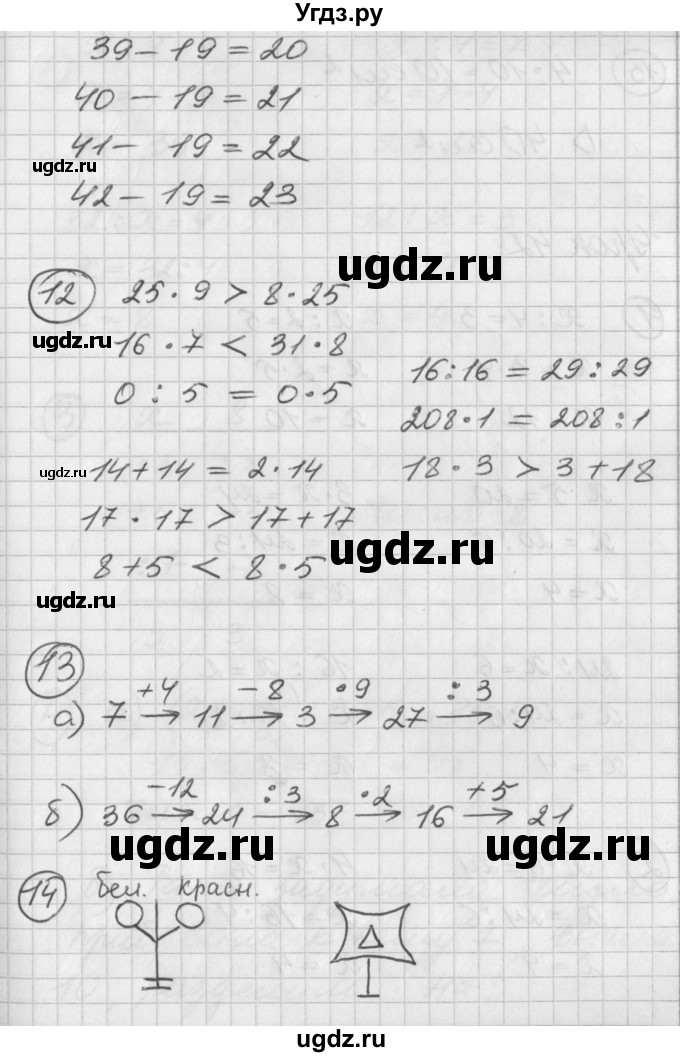 Угдз.ру
39 – 19 = 20
40 – 19 = 21
41 – 19 = 22
ugdz.ru
42 – 19 = 23
ugdz.ru
12 25 · 9 > 8 · 25
ugdz.ru 16 · 7 < 31 · 8
16 : 16 = 29 : 29
0 : 5 = 0 · 5
208 · 1 = 208 : 1
ugdz.ru 14 + 14 = 2 · 14 18 · 3 > 3 + 18
17 · 17 > 17 + 17
ugdz.ru
8 + 5 < 8 · 5
ugdz.ru
13
+4 – 8 · 9 : 3
а) 7 → 11 → 3 → 27 → 9
–12 : 3 · 2 +5
б) 36 → 24 → 8 → 16 → 21
ugdz.ru ugdz.ru
14 бел. красн.
ugdz.ru